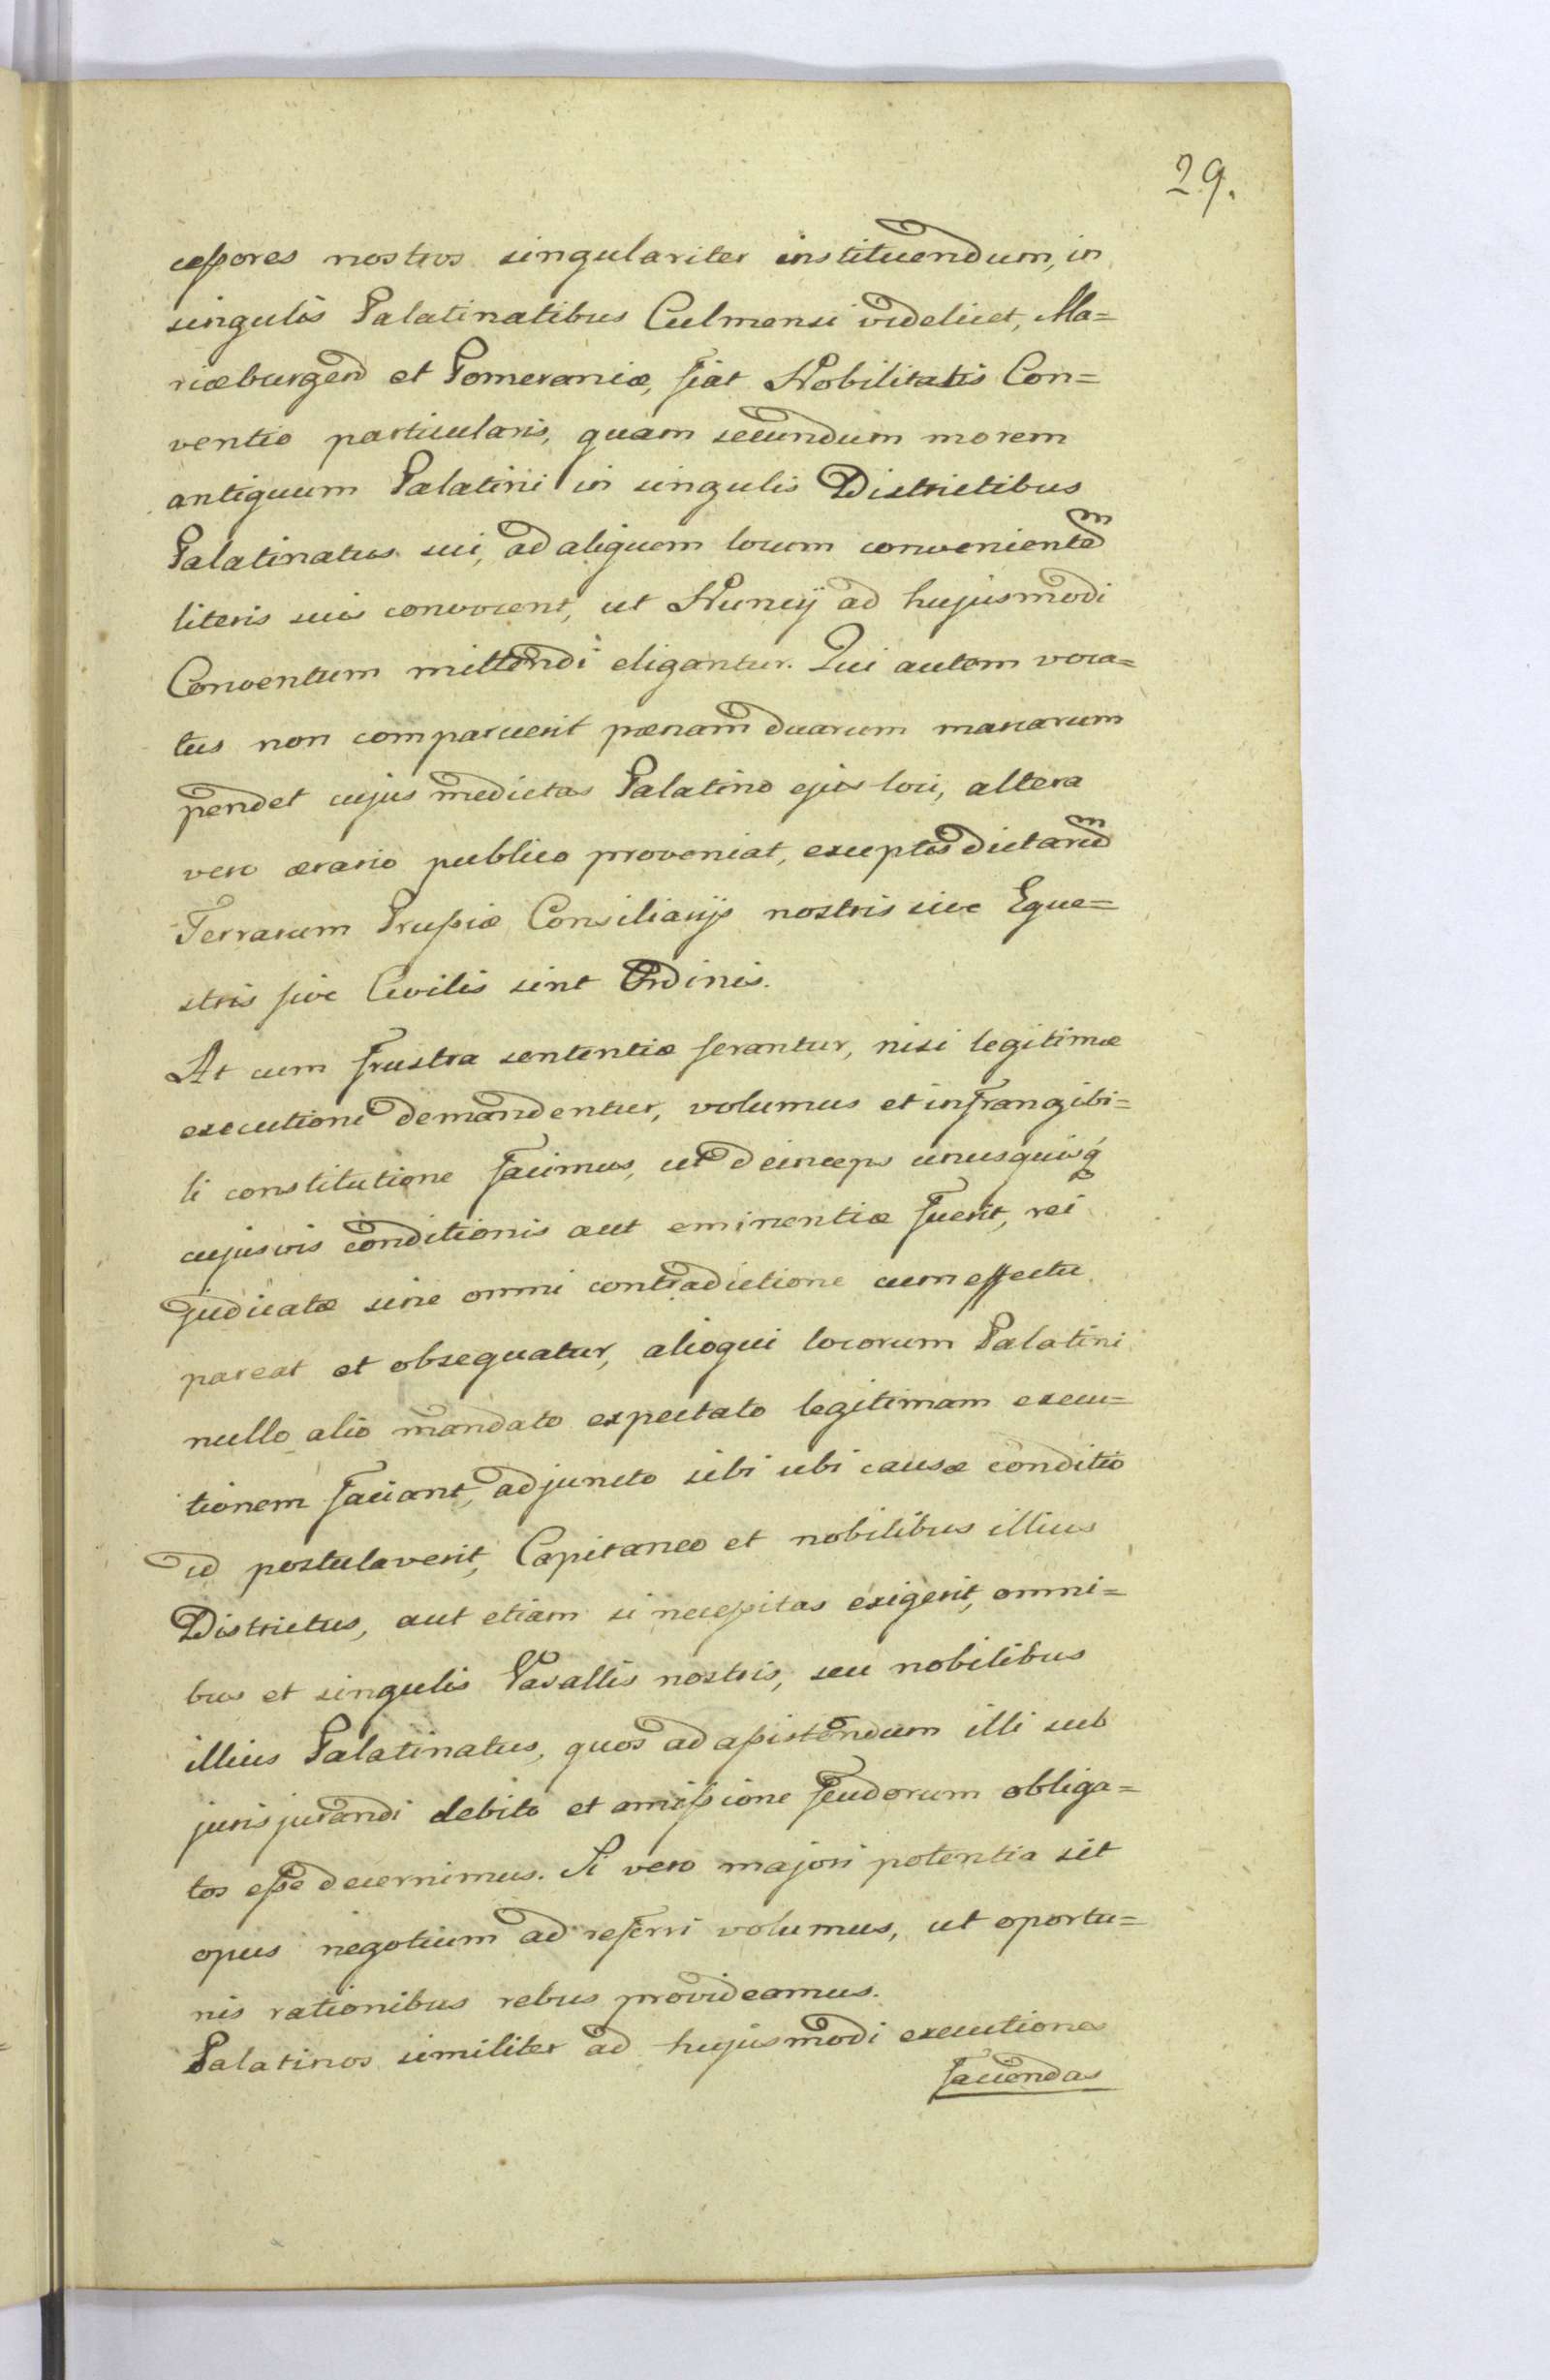 29.
cessores nostros singulariter instituendum, in
singulis Palatinatibus Culmensi videlicet, Ma=
riæburgen et Pomeraniæ, fiat Nobilitatis Con=
ventio particularis, quam secundum morem
antiquum Palatini in singulis Districtibus
Palatinatus sui, ad aliquem locum convenientem
literis suis convocent, ut Nuncij ad hujusmodi
Conventum mittendi eligantur. Qui autem voca=
tus non comparuerit pœnam duarum marcarum
pendet cujus medietas Palatino ejus loci, altera
vero ærario publico proveniat, exceptis dictarum
Terrarum Prussiæ Consiliarijs nostris sive Eque=
stris sive Civilis sint Ordinis.
At cum frustra sententiæ ferantur, nisi legitimæ
executioni demandentur, volumus et infrangibi=
li constitutione facimus, ut deinceps unusquisq́
cujusvis conditionis aut eminentiæ fuerit, rei
judicatæ sine omni contradictione cum effectu
pareat et obsequatur, alioqui locorum Palatini
nullo alio mandato expectato legitimam execu=
tionem faciant, adjuncto sibi ubi causæ conditio
id postulaverit, Capitaneo et nobilibus illius
Districtus, aut etiam si necessitas exigerit, omni=
bus et singulis Vasallis nostris, seu nobilibus
illius Palatinatus, quos ad assistendum illi sub
jurisjurandi debito et amissione feudorum obliga=
tos esse decernimus. Si vero majori potentia sit
opus negotium ad referri volumus, ut oportu=
nis rationibus rebus provideamus.
Palatinos similiter ad hujusmodi executiones
faciendas